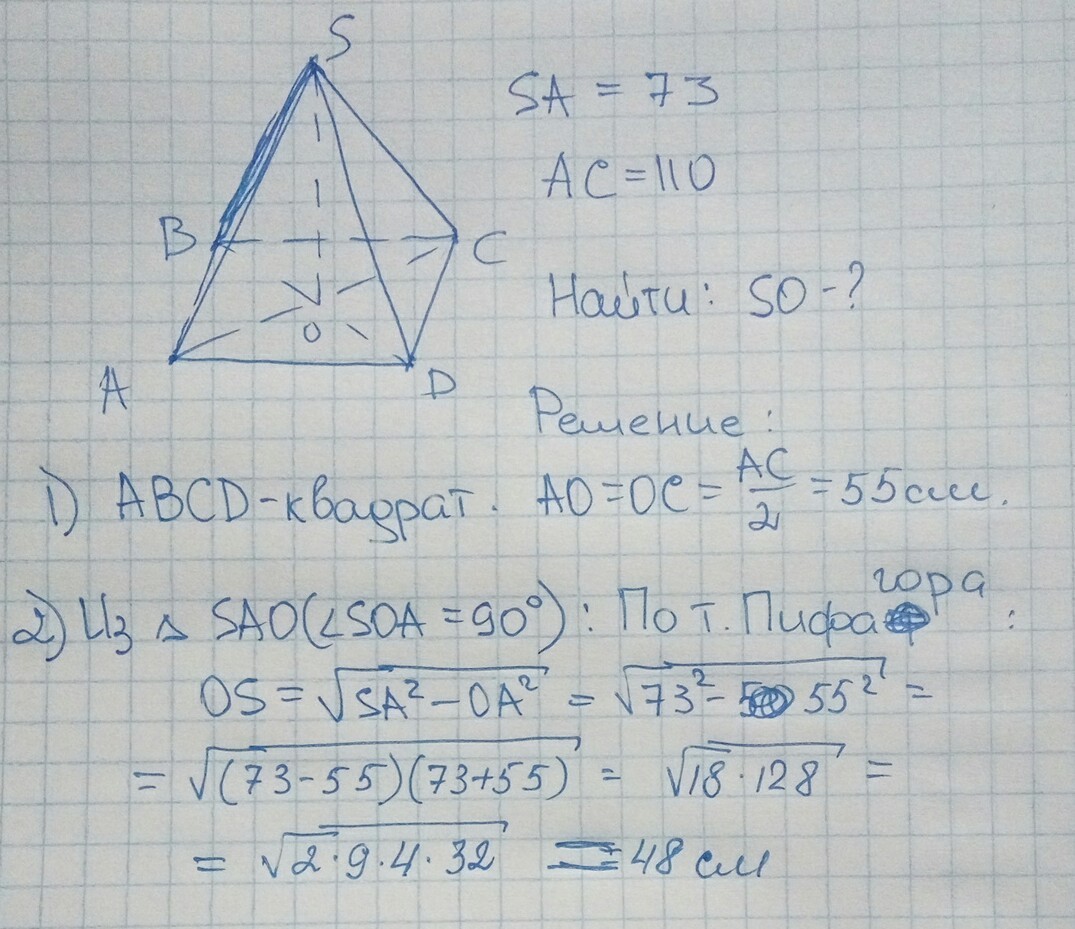 S
SA = 73
AC = 110
B
C
Найти: SO - ?
O
A
D
Решение:
1) ABCD - квадрат. AO = OC = AC/2 = 55 см.
2) Из △ SAO (∠SOA = 90°): По т. Пифагора :
OS = √(SA² - OA²) = √(73² - 55²) =
= √((73-55)(73+55)) = √(18·128) =
= √(2·9·4·32) = 48 см